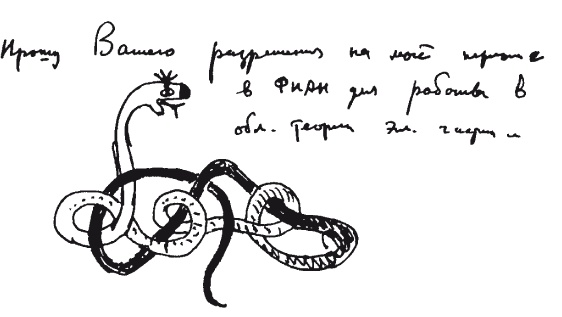 Прошу Вашего разрешения на моё
в ФИАН для работы в
обл. теории эл. частиц и